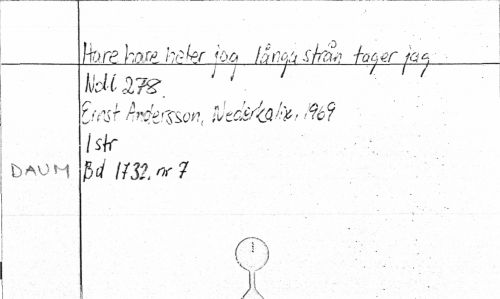 Hare hare heter jag långa strån tager jag
Nd.l 278.
Ernst Andersson, Nederkalix, 1969
1 str
DAUM Bd 1732, nr 7